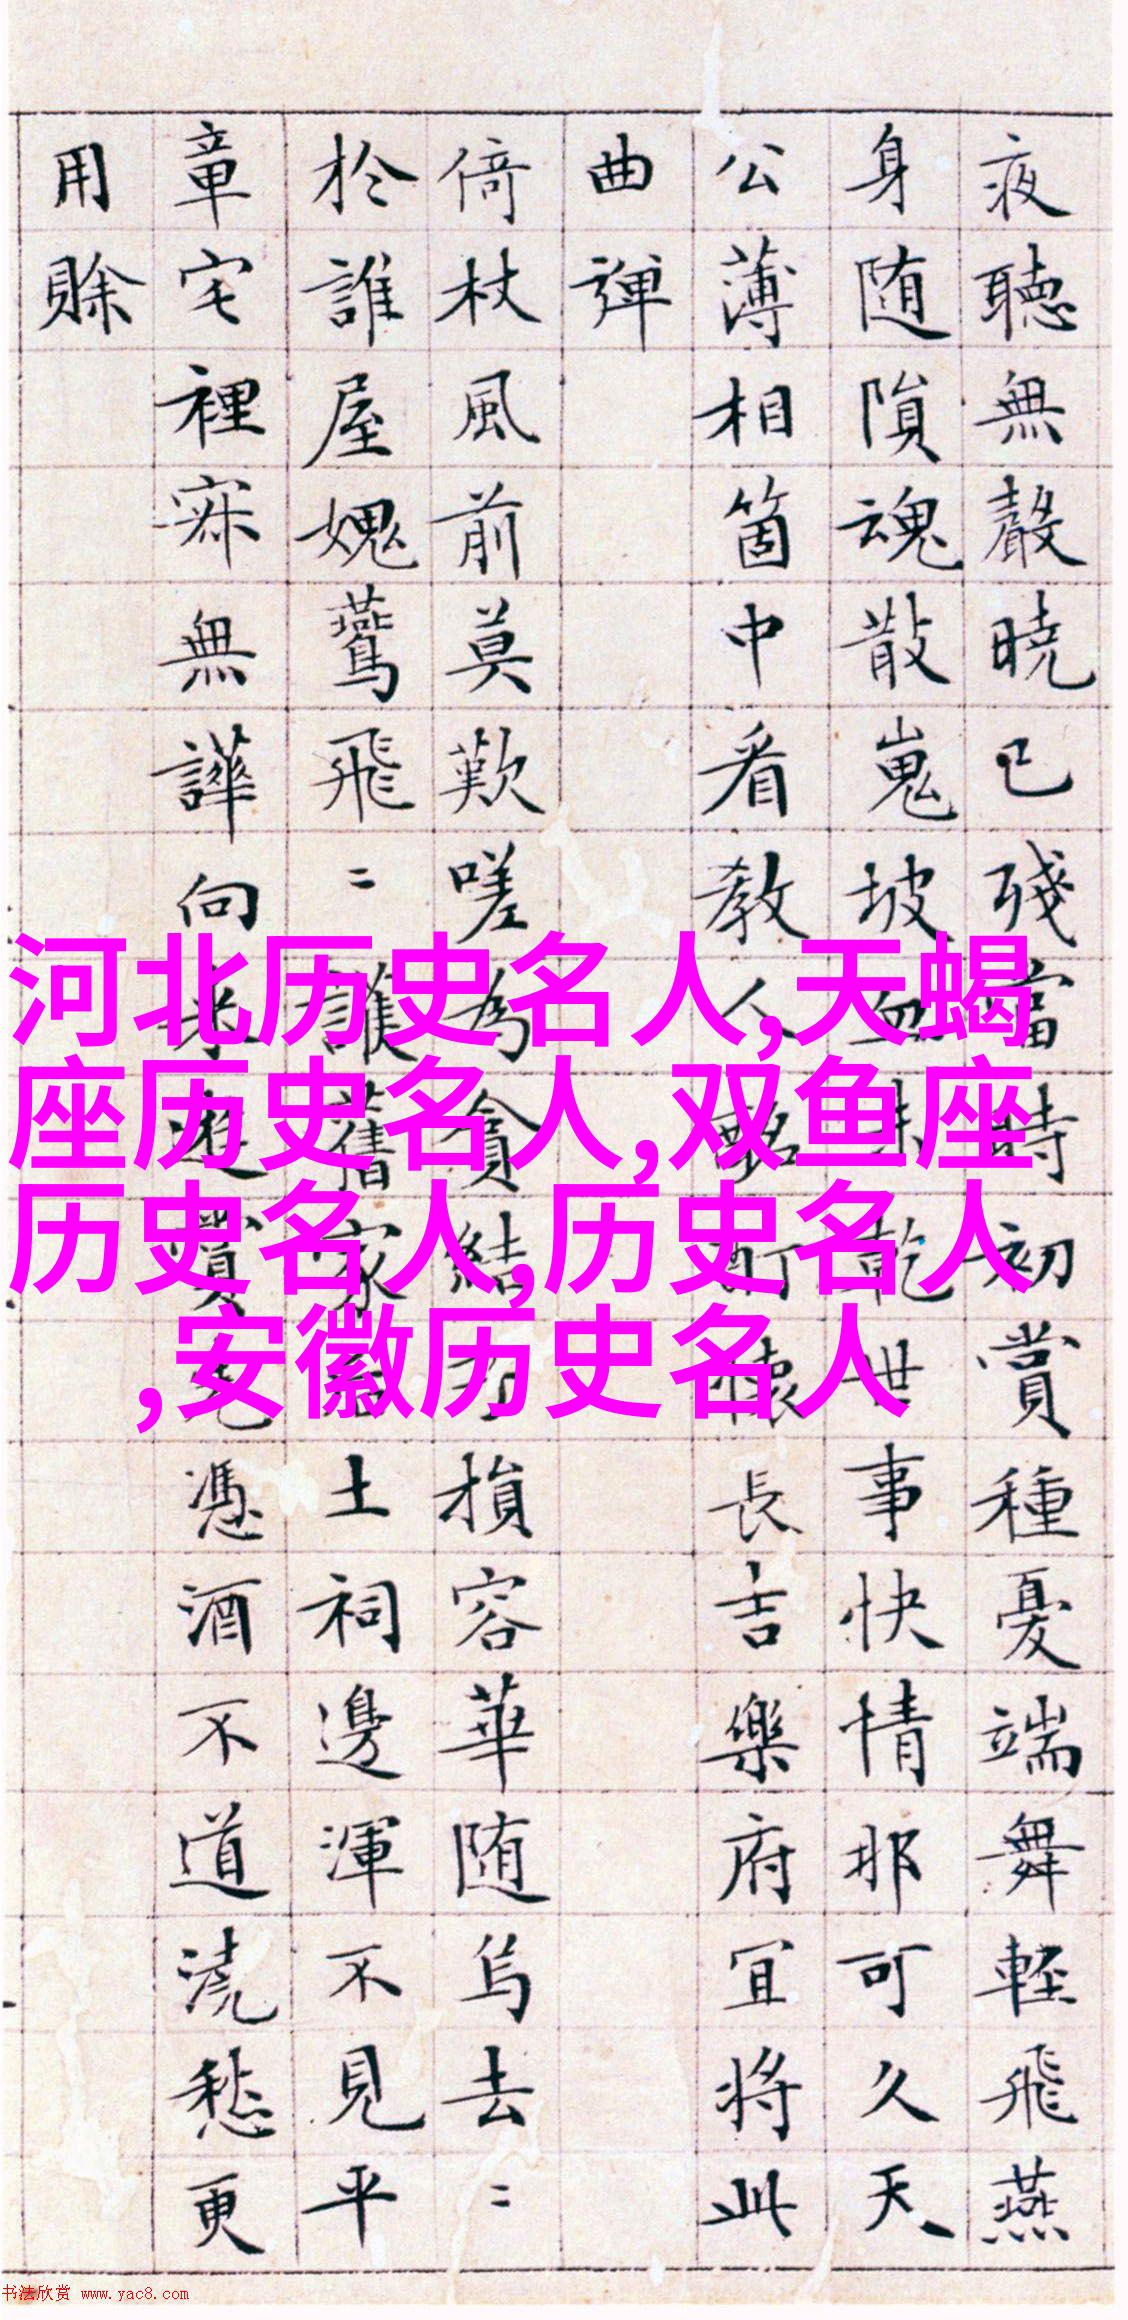 夜聽無聲曉已殘當時初賞種憂端舞輕飛燕
身随隕魂散嵬坡血未乾世事快情那可久天
公薄相箇中看教人酩酊懷長吉樂府冝將此
曲彈
倚杖風前莫歎嗟為貪結子損容華随烏去〻
於誰屋媿鷰飛〻誰舊家后土祠邊渾不見平
章宅裡寂無譁向來遊賞先憑酒不道澆愁更
用賒
河北历史名人,天蝎
座历史名人,双鱼座
历史名人,历史名人
,安徽历史名人
书法欣赏 www.yac8.com